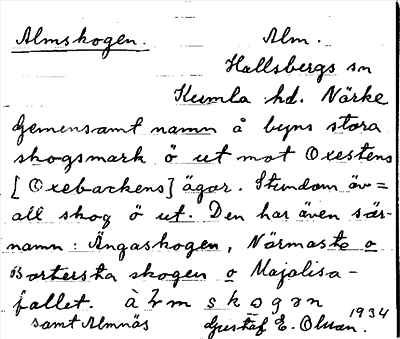 Almskogen. Alm.
Hallsbergs sn
Kumla hd. Närke
Gemensamt namn å byns stora
skogsmark ö ut mot Oxestens
[Oxebackens] ägor. Stundom äv=
all skog ö ut. Den har även sär-
namn: Ängaskogen, Närmaste o
Bortersta skogen o Majalisa-
fallet.
samt Almnäs Gustaf E. Olsson. 1934